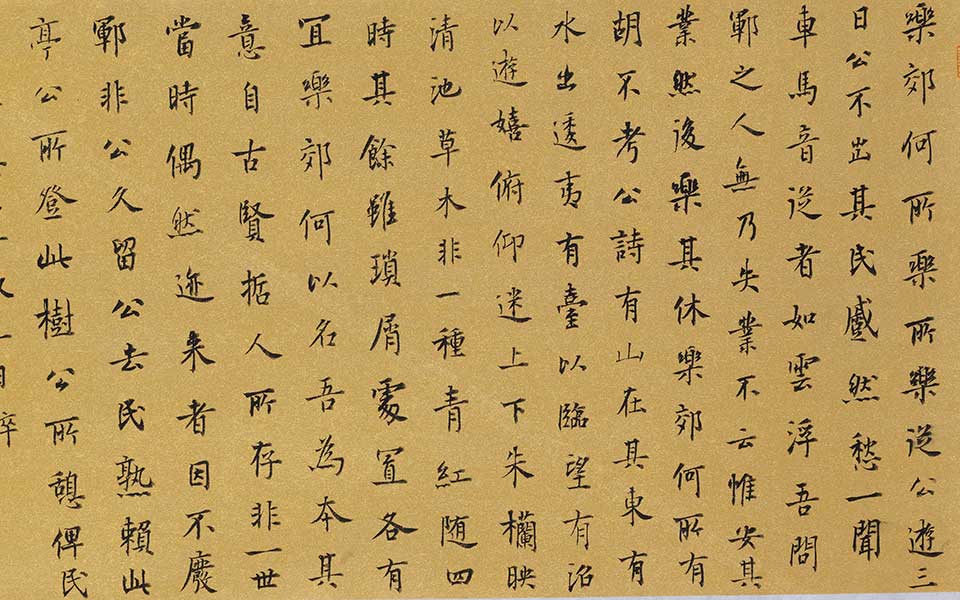 樂郊何所樂所樂從公遊三
日公不出其民慼然愁一聞
車馬音從者如雲浮吾問
鄆之人無乃失業不云惟安其
業然後樂其休樂郊何所有
胡不考公詩有山在其東有
水出逶夷有臺以臨望有沼
以遊嬉俯仰迷上下朱欄映
清池草木非一種青紅随四
時其餘雖瑣屑處置各有
宜樂郊何以名吾為本其
意自古賢人所存非一世
當時偶然迹来者因不廢
鄆非公久留公去民熟賴此
亭公所登此樹公所憩俾民